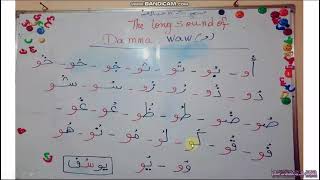 WWW.BANDICAM.COM
The long sound of
Damma waw (و)
أُو - بُو - تُو - ثُو - جُو - حُو - خُو
دُو - ذُو - رُو - زُو - سُو - شُو
صُو - ضُو - طُو - ظُو - عُو - غُو
فُو - قُو - كُو - لُو - مُو - نُو - هُو
وُو - يُو
يُوسُف